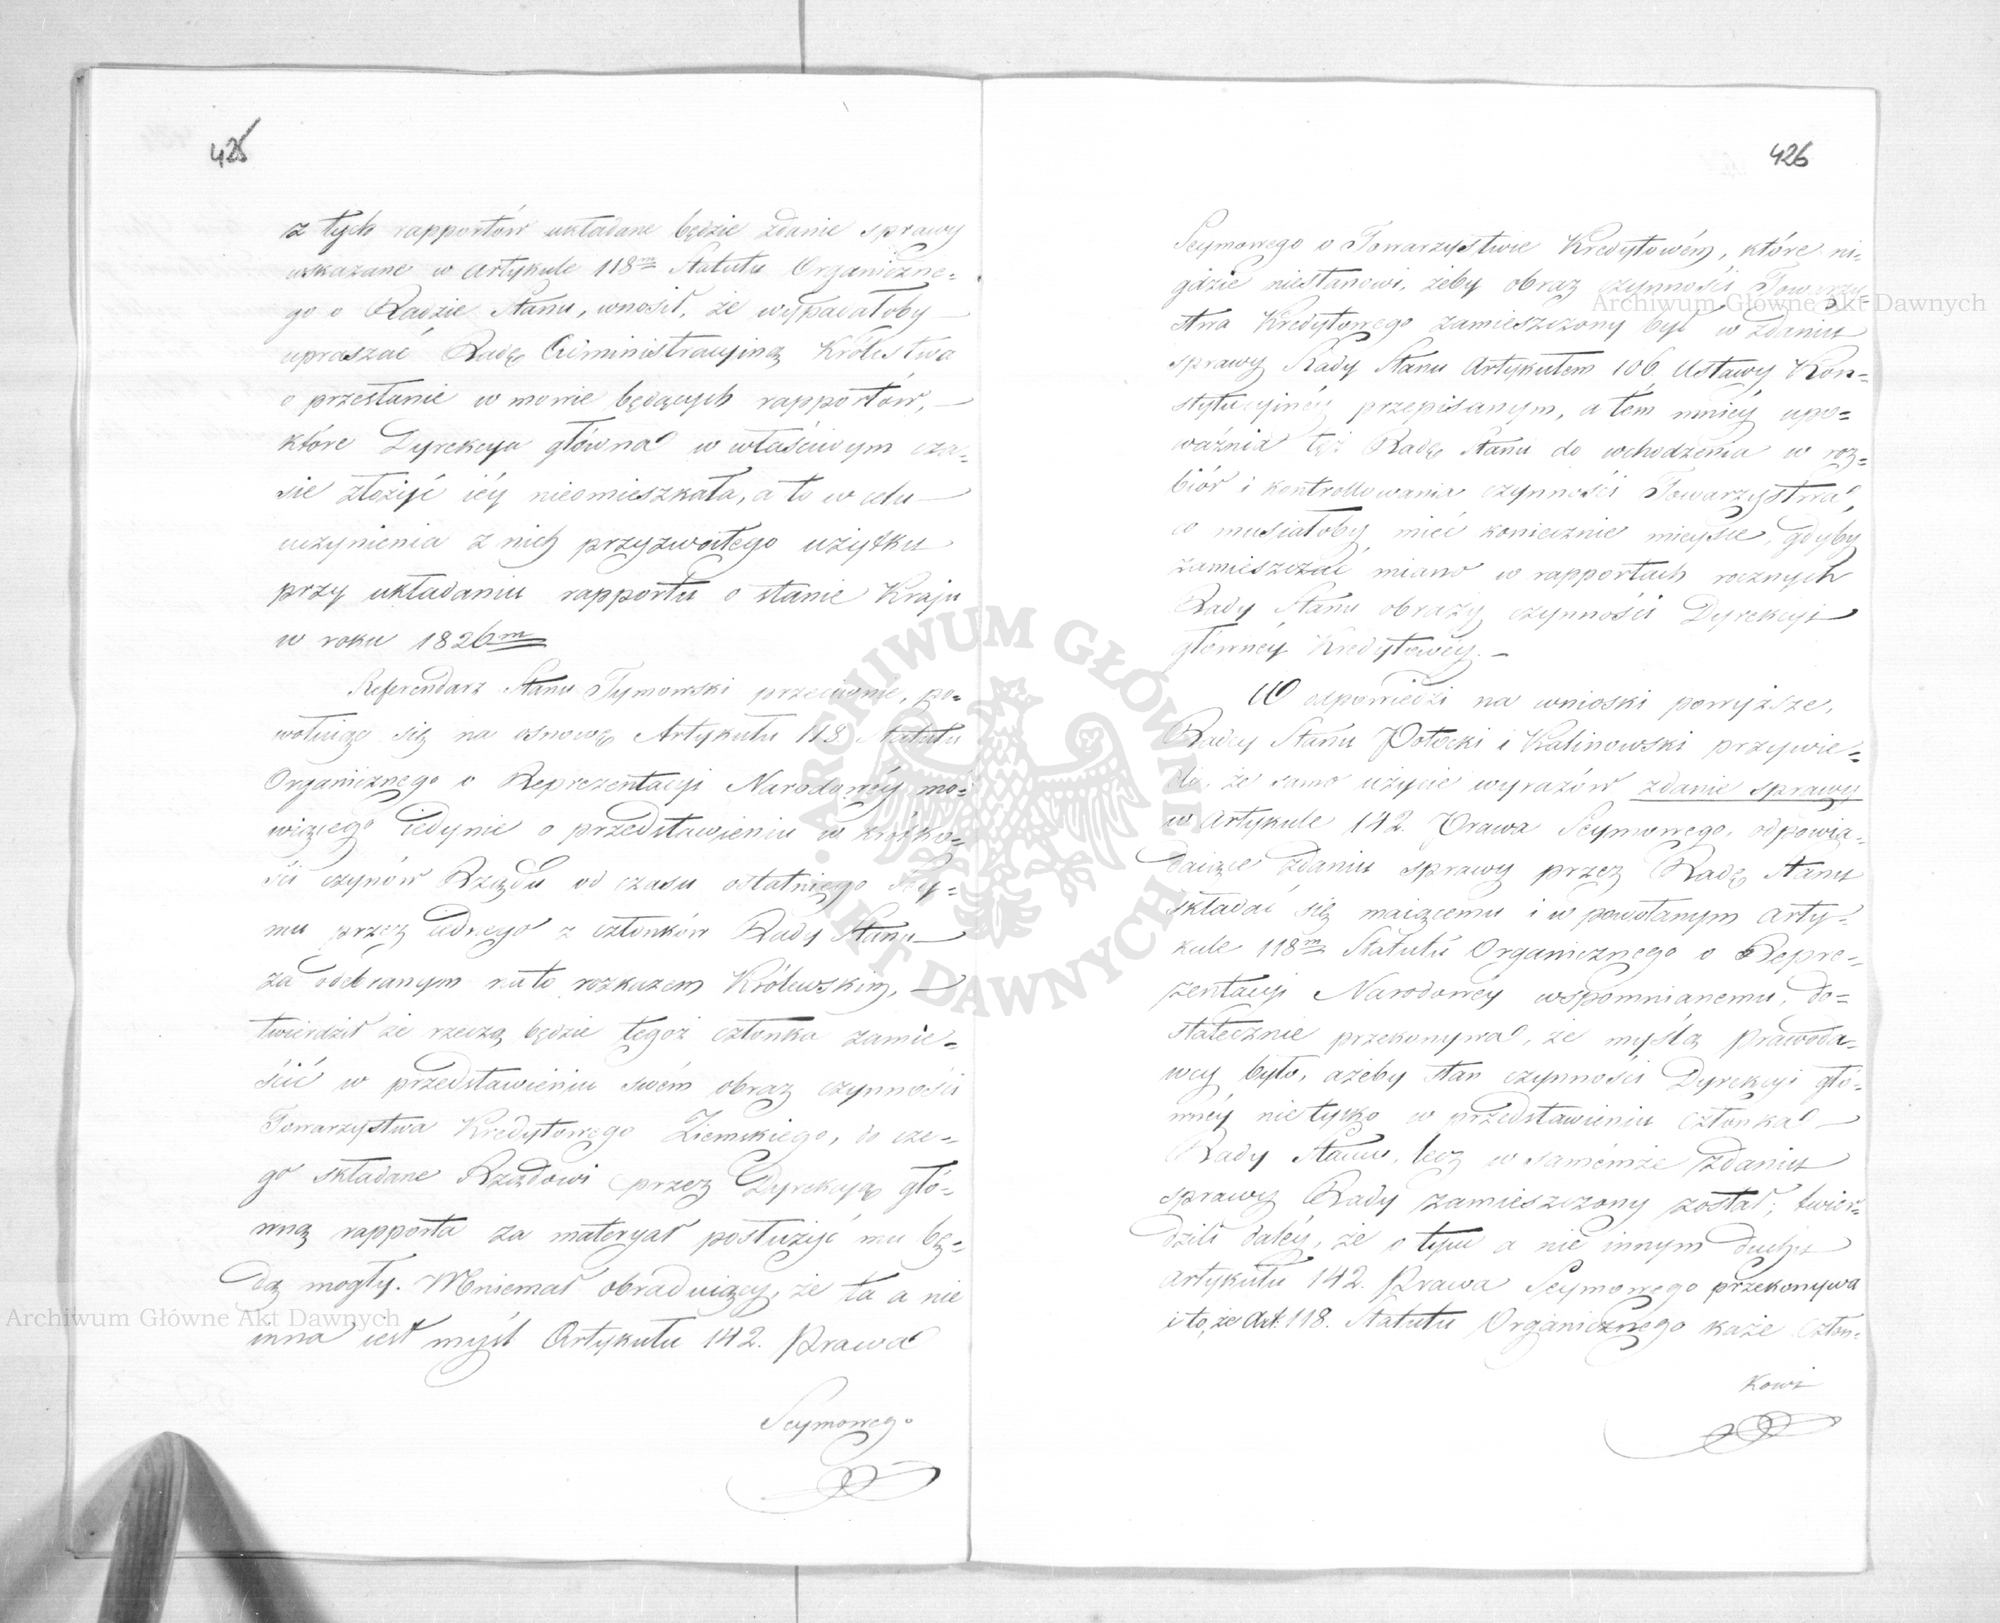 425
z tych rapportów układane będzie zdanie sprawy
wskazane w Artykule 118m Statutu Organiczne=
go o Radzie Stanu, wnosił, że wypadałoby —
upraszać Radę Administracyiną Królestwa
o przesłanie w mowie będących rapportów, —
które Dyrekcya główna w właściwym cza-
sie złożyć iéy nieomieszkała, a to w celu —
uczynienia z nich przyzwoitego użytku
przy układaniu rapportu o stanie Kraju
w roku 1826m
Referendarz Stanu Tymowski przeciwnie, po=
wołuiąc się na osnowę Artykułu 118 Statutu
Organicznego o Reprezentacyi Narodowéy mó=
wiącego iedynie o przedstawieniu w krótko=
ści czynów Rządu od czasu ostatniego Sey=
mu przez iednego z członków Rady Stanu —
za odebranym na to rozkazem Królewskim, —
twierdził że rzeczą będzie tegoż członka zamie=
ścić w przedstawieniu swém obraz czynności
Towarzystwa Kredytowego Ziemskiego, do cze=
go składane Rządowi przez Dyrekcyą głó=
wną rapporta za materyał posłużyć mu bę=
dą mogły. Mniemał obraduiący, że ta a nie
inna iest myśl Artykułu 142. Prawa
Seymowego
426
Seymowego o Towarzystwie Kredytowém, które ni=
gdzie niestanowi, żeby obraz czynności Towarzy=
stwa Kredytowego zamieszczony był w zdaniu
sprawy Rady Stanu Artykułem 106 Ustawy Kon=
stytucyinéy przepisanym, a tém mniéy upo=
ważnia też Radę Stanu do wchodzenia w roz=
biór i kontrollowania czynności Towarzystwa,
co musiałoby mieć koniecznie mieysce, gdyby
zamieszczać miano w rapportach rocznych
Rady Stanu obrazy czynności Dyrekcyi
głównéy Kredytowéy. —
W odpowiedzi na wnioski powyższe,
Radcy Stanu Potocki i Kalinowski przywie=
dli, że samo użycie wyrazów zdanie sprawy
w Artykule 142. Prawa Seymowego, odpowia=
daiące zdaniu sprawy przez Radę Stanu
składać się maiącemu i w powołanym Arty=
kule 118m Statutu Organicznego o Repre=
zentacyi Narodowéy wspomnianemu, do=
statecznie przekonywa, że myślą Prawoda=
wcy było, ażeby stan czynności Dyrekcyi głó=
wnéy nietylko w przedstawieniu Członka —
Rady Stanu, lecz w samémże zdaniu
sprawy Rady zamieszczony został; twier=
dzili daléy, że o tym a nie innym duchu
Artykułu 142. Prawa Seymowego przekonywa
i to, że Art. 118. Statutu Organicznego każe Człon=
kowi
ARCHIWUM GŁÓWNE AKT DAWNYCH
Archiwum Główne Akt Dawnych
Archiwum Główne Akt Dawnych